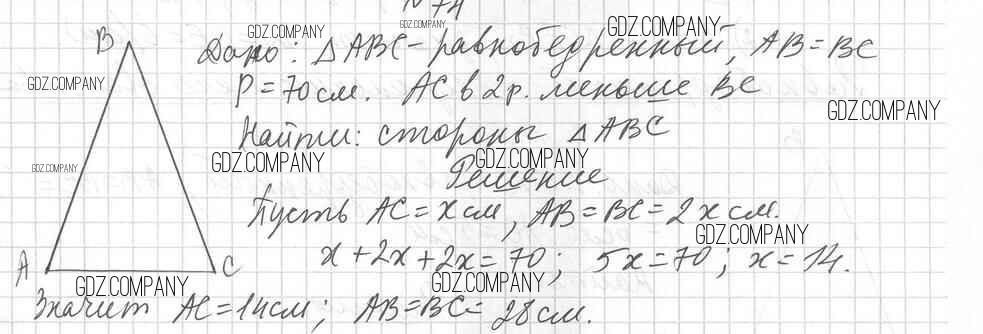 № 74
B Дано: △ABC - равнобедренный, AB = BC
P = 70 см. AC в 2 р. меньше BC
Найти: стороны △ABC
Решение
Пусть AC = x см, AB = BC = 2x см.
x + 2x + 2x = 70; 5x = 70; x = 14.
A C
Значит AC = 14 см; AB = BC = 28 см.
GDZ.COMPANY
GDZ.COMPANY
GDZ.COMPANY
GDZ.COMPANY
GDZ.COMPANY
GDZ.COMPANY
GDZ.COMPANY
GDZ.COMPANY
GDZ.COMPANY
GDZ.COMPANY
GDZ.COMPANY